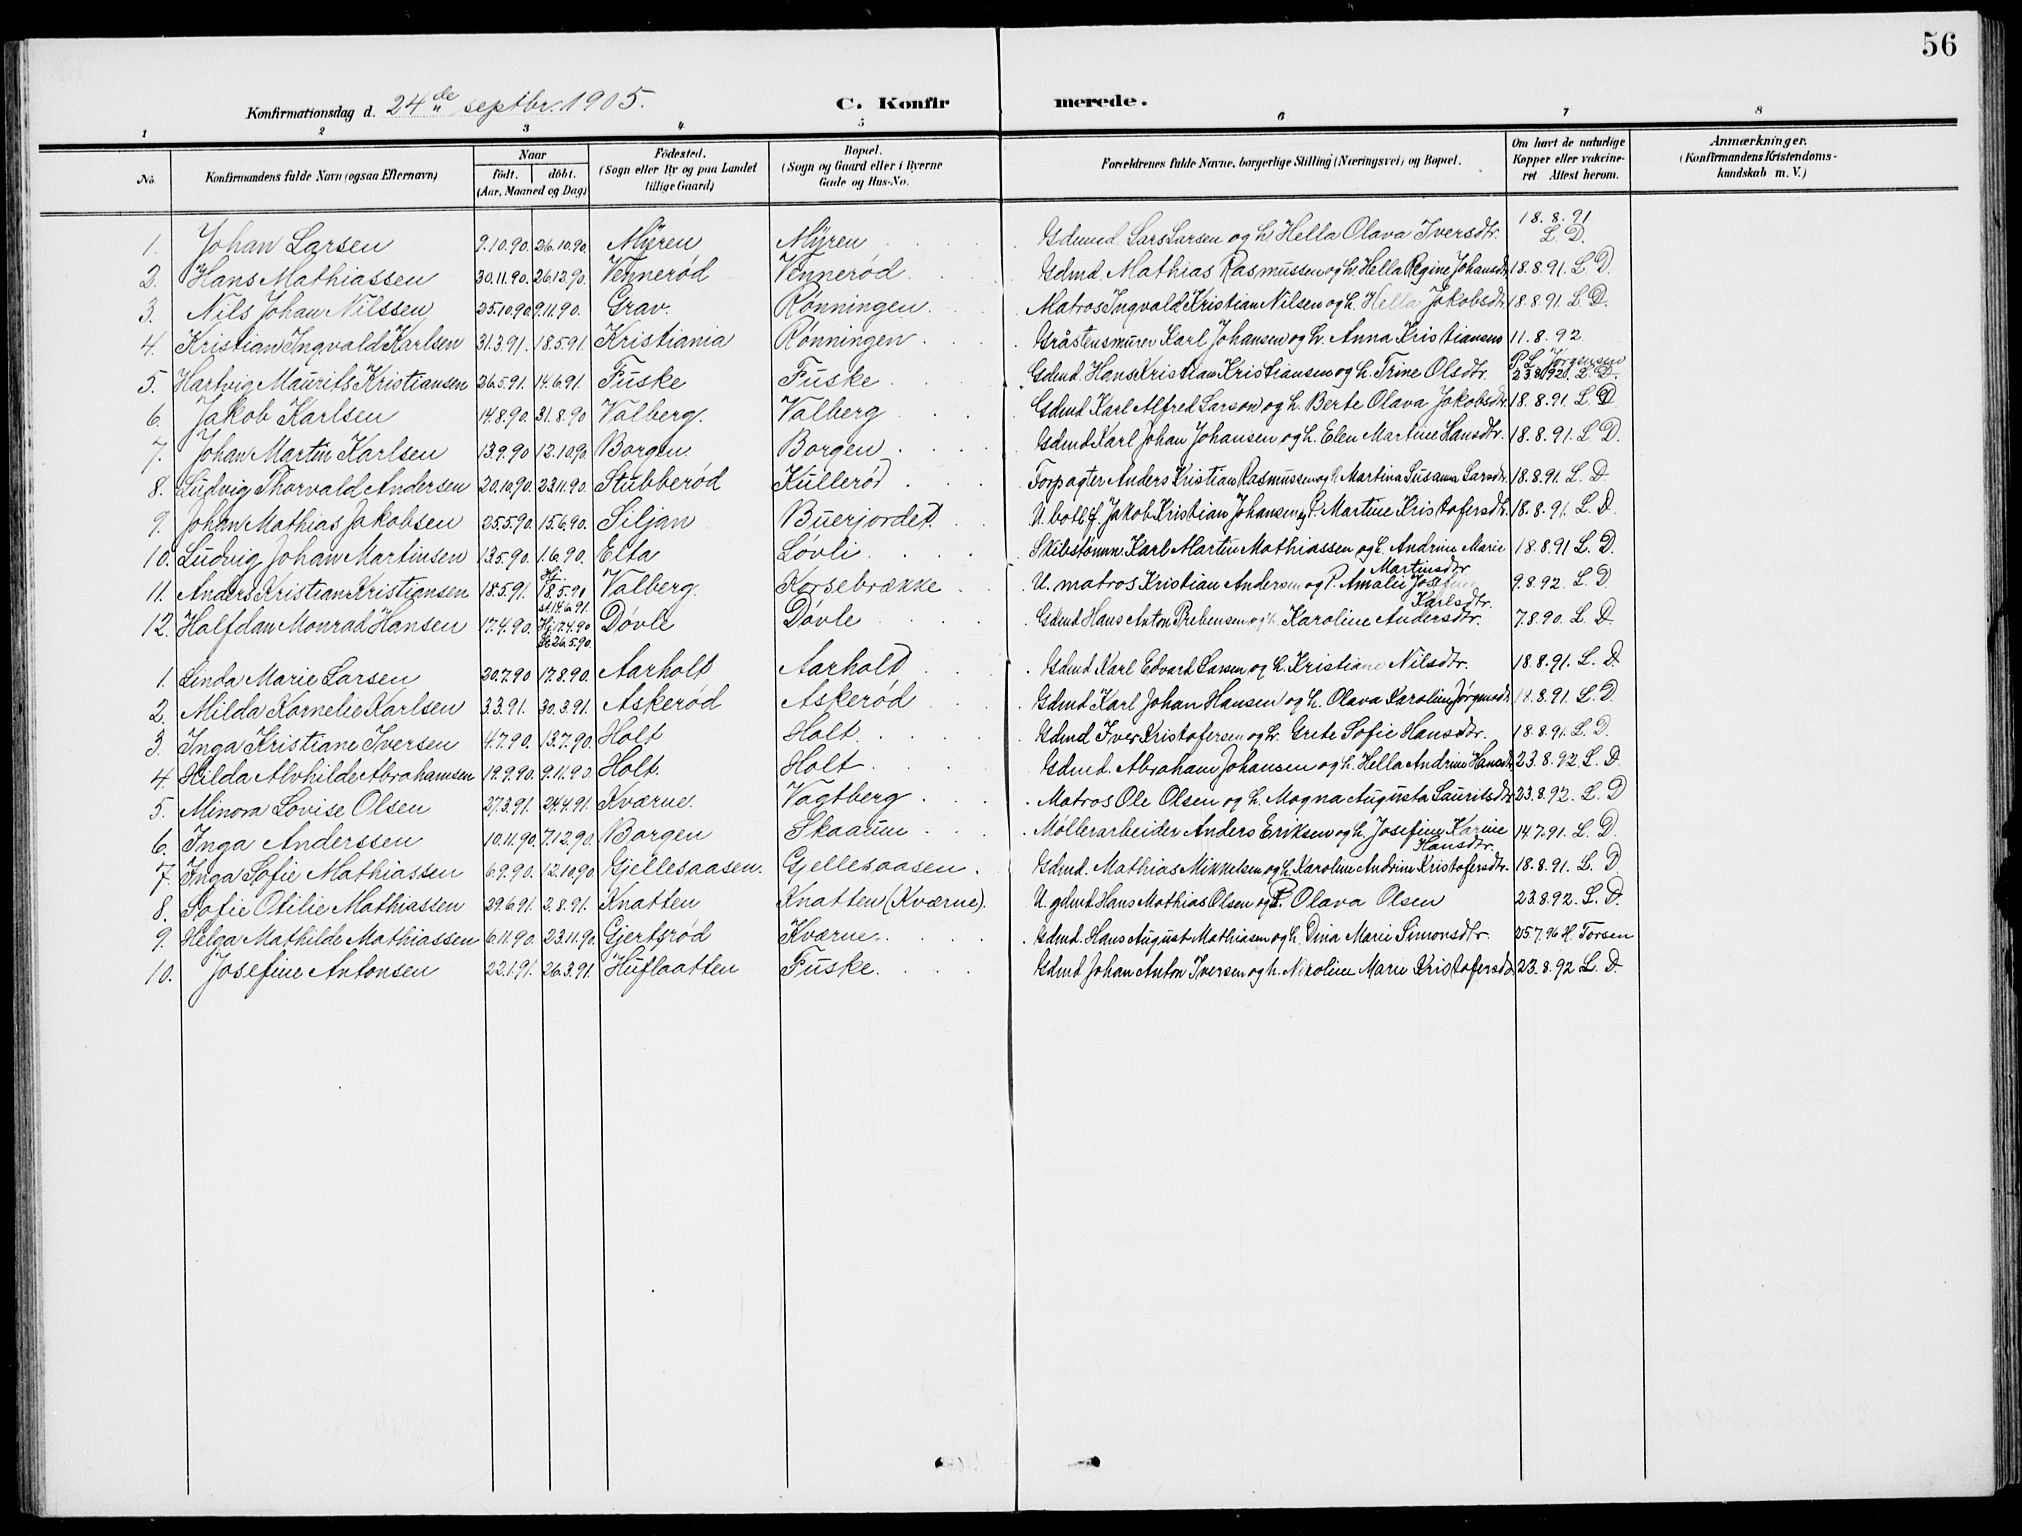 56
Konfirmationsdag d. 24de septbr. 1905.
C. Konfirmerede.
1 2 3 4 5 6 7 8
No. Konfirmandens fulde Navn (ogsaa Efternavn) Naar født. døbt. (Aar, Maaned og Dag) Fødested. (Sogn eller By og paa Landet tillige Gaard) Bopæl. (Sogn og Gaard eller i Byerne Gade og Hus-No. Forældrenes fulde Navne, borgerlige Stilling (Næringsvei) og Bopæl. Om havt de naturlige Kopper eller vakcineret. Attest herom. Anmærkninger. (Konfirmandens Kristendomskundskab m. V.)
1. Johan Larsen 9.10.90. 26.10.90. Myren Myren Gdmd. Lars Larsen og h. Hella Olava Iversdtr. 18.8.91 L. D.
2. Hans Mathiassen 30.11.90. 26.12.90. Vennerød Vennerød Gdmd. Mathias Rasmussen og h. Hella Regine Johansdtr 18.8.91. L. D.
3. Nils Johan Nilssen 25.10.90 9.11.90. Grav. Rønningen. Matros Ingvald Kristian Nilsen og h. Hella Jakobsdtr 18.8.91. L. D.
4. Kristian Ingvald Karlsen 31.3.91. 18.5.91. Kristiania Rønningen Gråstensmurer Karl Johansen og h. Anna Kristiansen 11.8.92 P. L. Jørgensen
5. Hartvig Maurits Kristiansen 26.5.91. 14.6.91 Fuske Fuske Gdmd. Hans Kristian Kristiansen og h. Trine Olsdtr. 23.8.92. L. D.
6. Jakob Karlsen 14.8.90. 31.8.90 Valberg. Valberg Gdmd Karl Alfred Larsen og h. Berte Olava Jakobsdtr. 18.8.91. L. D
7. Johan Martin Karlsen 13.9.90 12.10.90. Borgen Borgen Gdmd Karl Johan Johansen og h. Elen Martine Hansdtr. 18.8.91. L D.
8. Ludvig Thorvald Andersen 20.10.90. 23.11.90. Stubberød Kullerød Forpagter Anders Kristian Rasmussen og h. Martina Susanna Larsdtr. 18.8.91. L. D.
9. Johan Mathias Jakobsen 25.5.90. 15.6.90. Siljan Buerjordet. U. botlf. Jakob Kristian Johansen og P. Martine Kristofersdtr. 18.8.91. L. D.
10. Ludvig Johan Martinsen 13.5.90. 1.6.90. Elta Løvli Skibstømm. Karl Martin Mathiassen og h. Andrine Marie Martinsdtr 18.8.91 L. D.
11. Anders Kristian Kristiansen 18.5.91. Hj. 18.5.90 st. 14.6.91. Valberg. Korsebrække U. matros Kristian Andersen og P. Amalie Josefine Karlsdtr. 9.8.92. L. D
12. Halfdan Monrad Hansen 17.4.90. Hj. 17.4.90 St 26.5.90. Døvle Døvle Gdmd Hans Anton Prebensen og h. Karoline Andersdtr. 7.8.90. L. D.
1. Linda Marie Larsen 20.7.90 17.8.90. Aarholt Aarholt Gdmd Karl Edvard Larsen og h. Kristiane Nilsdtr. 18.8.91. L. D.
2. Milda Kornelie Karlsen 3.3.91. 30.3.91. Askerød Askerød Gdmd Karl Johan Hansen og h. Olava Karoline Jørgensdtr 18.8.91. L. D.
3. Inga Kristiane Iversen 4.7.90. 13.7.90. Holt Holt Gdmd Iver Kristofersen og h. Grete Sofie Hansdtr. 18.8.91. L. D.
4. Hilda Alvhilde Abrahamsen 19.9.90. 9.11.90. Holt. Holt Gdmd. Abraham Johansen og h. Hella Andrine Hansdtr 23.8.92. L. D.
5. Minora Lovise Olsen 27.3.91. 24.4.91. Kværne. Vagtberg Matros Ole Olsen og h. Magna Augusta Lauritsdtr 23.8.92. L. D
6. Inga Anderssen 10.11.90. 7.12.90. Borgen Skaarun Møllerarbeider Anders Eriksen og h. Josefine Karine Hansdtr. 14.7.91. L. D.
7. Inga Sofie Mathiassen 6.9.90. 12.10.90 Gjellesaasen. Gjellesaasen. Gdmd. Mathias Mikkelsen og h. Karoline Andrine Kristofersdtr. 18.8.91. L. D.
8. Sofie Otilie Mathiassen 29.6.91. 2.8.91. Knatten Knatten (Kværne). U. gdmd. Hans Mathias Olsen og P. Olava Olsen 23.8.92. L. D.
9. Helga Mathilde Mathiassen 6.11.90. 23.11.90. Gjertsrød Kværne. Gdmd. Hans August Mathiasen og h. Dina Marie Simonsdtr. 25.7.96 H. Torsen
10. Josefine Antonsen 22.1.91. 26.3.91. Huflaatten Fuske. Gdmd Johan Anton Iversen og h. Nikoline Marie Kristofersdtr 23.8.92 L. D.